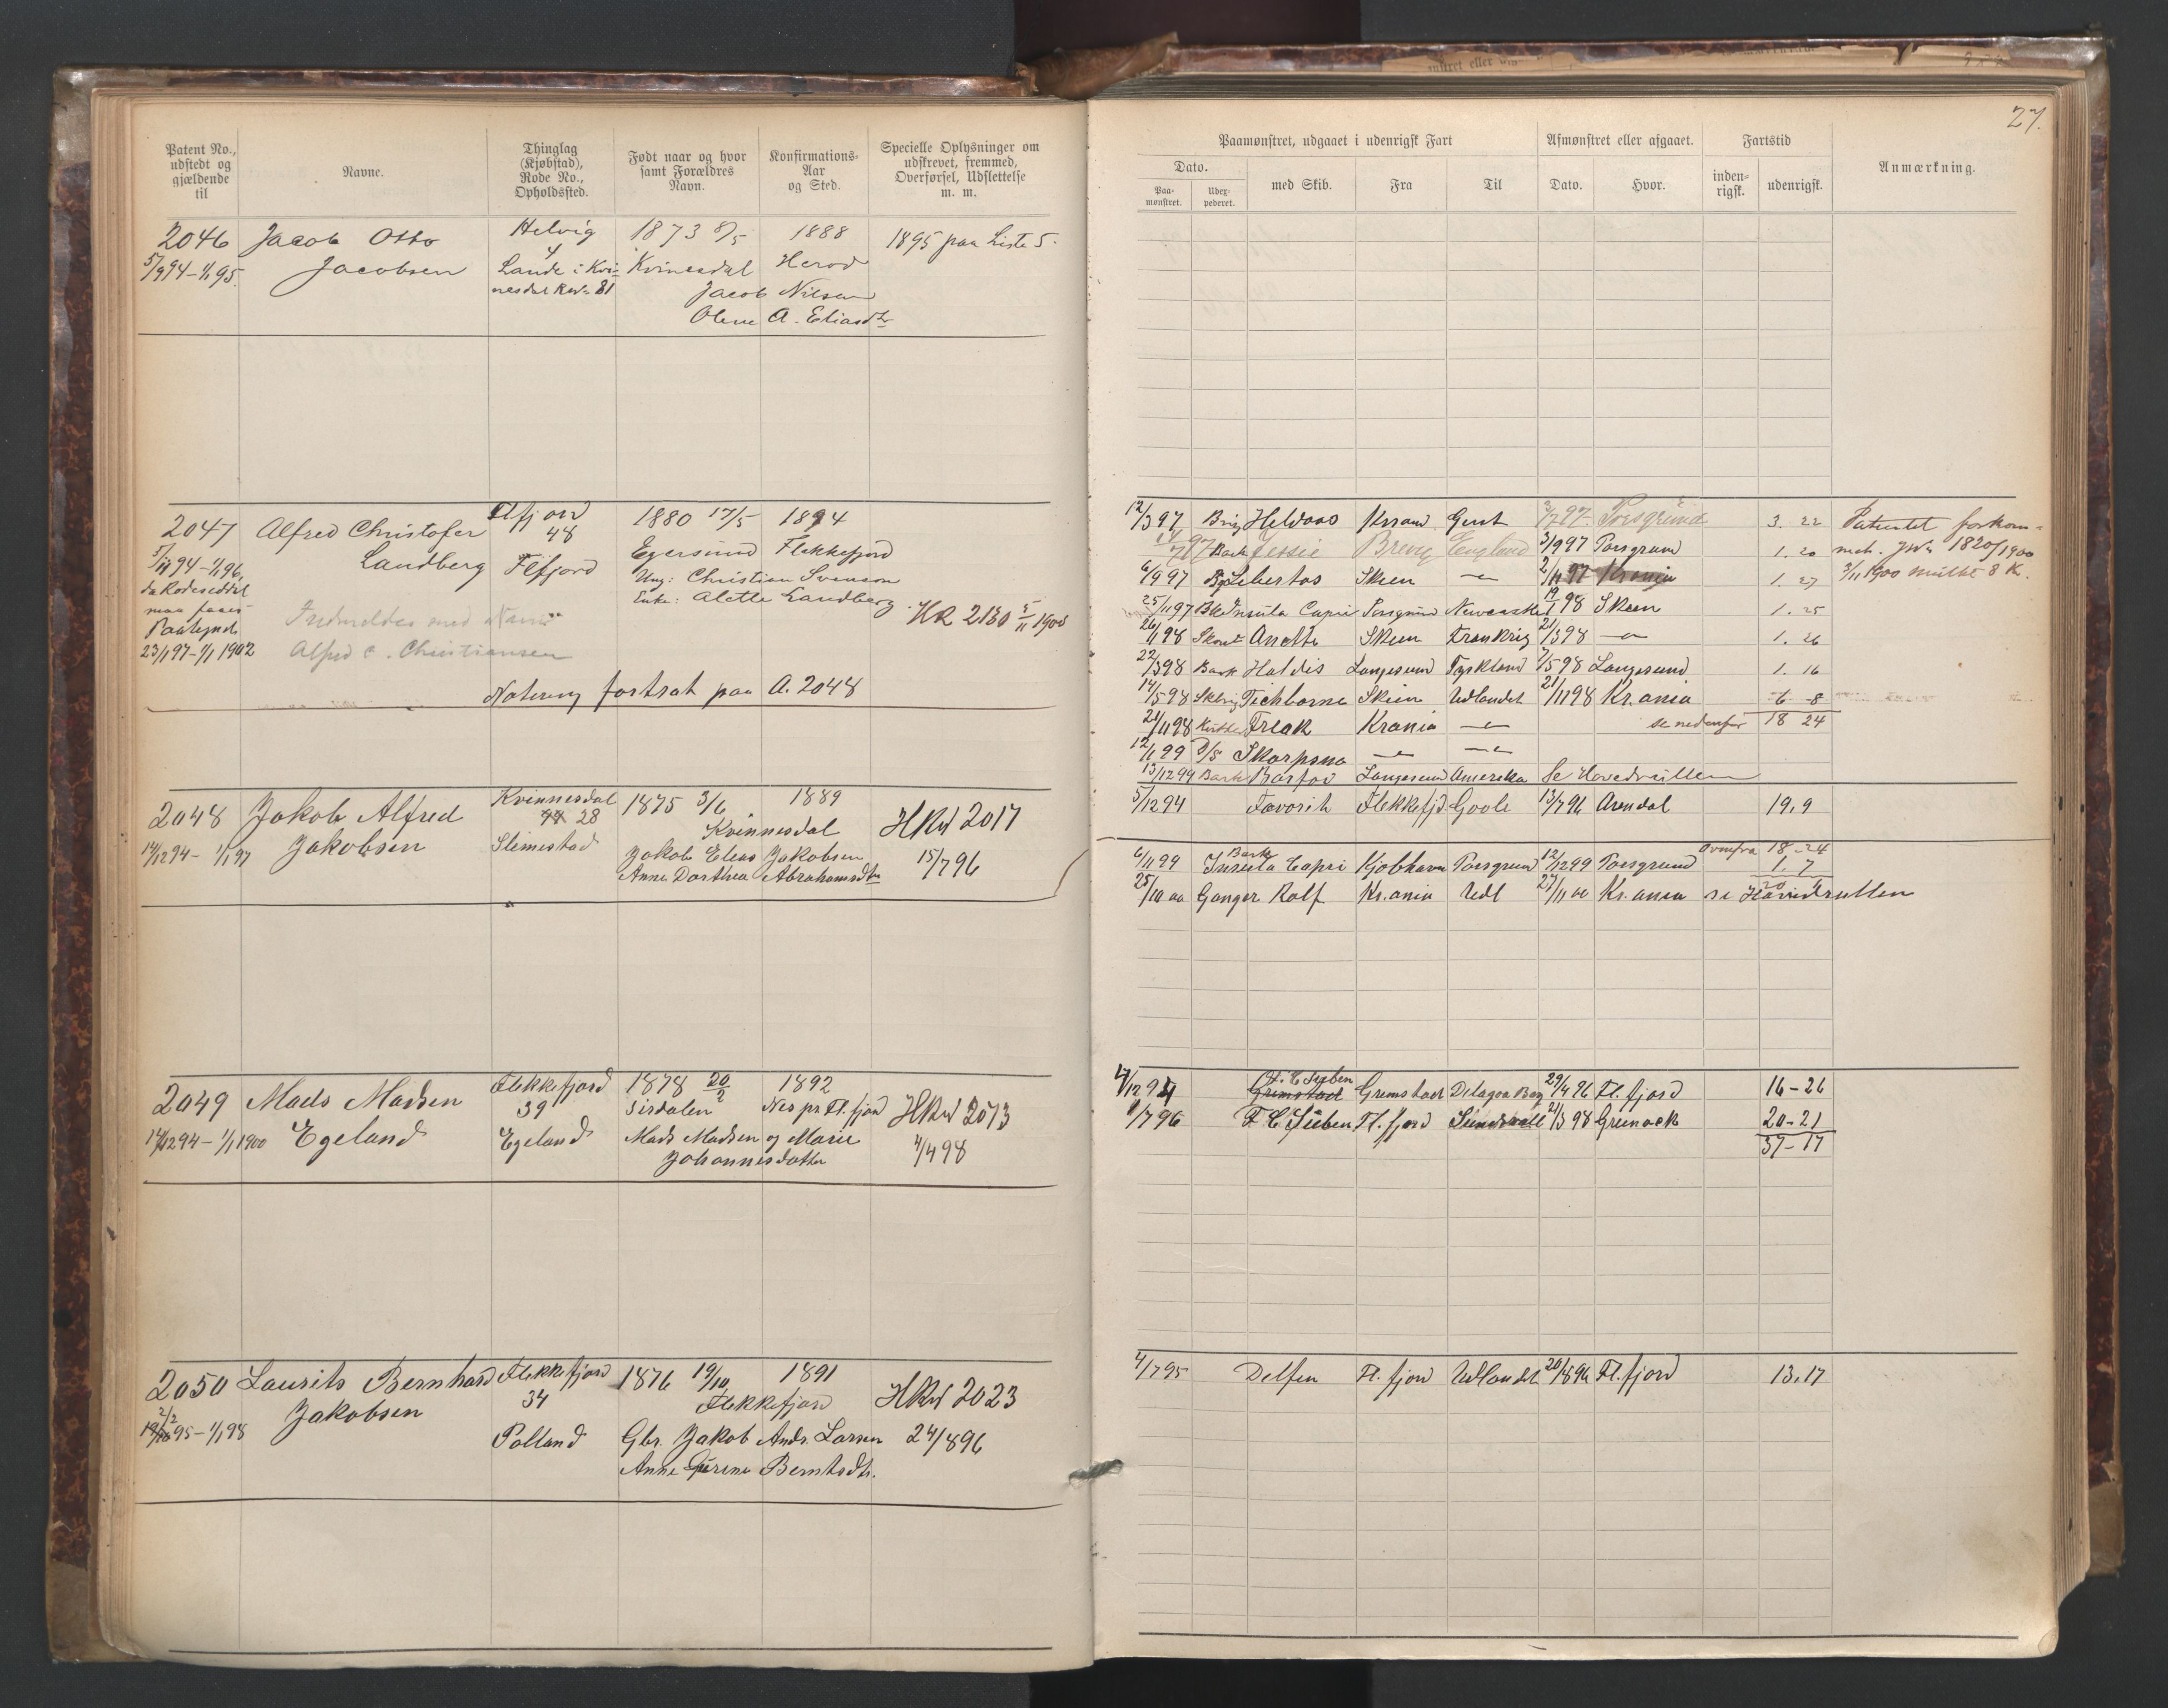 27.
Patent No., udstedt og gjældende til
Navne.
Thinglag (Kjøbstad), Rode No., Opholdssted.
Født naar og hvor samt Forældres Navn.
Konfirmations-Aar og Sted.
Specielle Oplysninger om udskrevet, fremmed, Overførsel, Udslettelse m. m.
2046 Jacob Otto Helvig 1873 8/5 1888 1895 paa Liste 5.
5/9 94 - 1/1 95. Jacobsen 4
Lande i Kvi- Kvinesdal Herod
nesdal Rode 81 Jacob Nilsen
Olene A. Eliasdtr
2047 Alfred Christofer Flfjord 1880 17/5 1894
Landberg 48 Egersund Flekkefjord
94 - 1/1 96, Flfjord Ung: Christian Svensen
da Rodeseddel Enke: Alette Landberg HR 2130 5/11 1900
maa faaes
Paategnet
23/1 97 - 1/1 1902 Alfred C. Christiansen
Notering fortsat paa A. 2048
2048 Jakob Alfred Kvinnesdal 1875 3/6 1889
Jakobsen 44 28 Kvinnesdal HRul 2017
14/12 94 - 1/1 97 Slimestad Jakob Elias Jakobsen 15/7 96
Anne Dorthea Abrahamsdtr
2049 Mads Madsen Flekkefjord 1878 20/2 1892
39 Sirdalen Nes pr. Fl.fjord HRul 2013
14/12 94 - 1/1 1900 Egeland Egeland Mads Madsen og Marie 4/4 98
Johannesdatter
2050 Laurits Bernhard Flekkefjord 1876 19/10 1891
Jakobsen 34 Flekkefjord HRul 2023
2/2
95 - 1/1 98 Polland Gbr. Jakob Andr. Larsen 24/8 96
Anne Gurine Berntsdtr.
Paamønstret, udgaaet i udenrigsk Fart
Afmønstret eller afgaaet.
Fartstid
Anmærkning.
Dato.
Paa-mønstret.
Udex-pederet.
med Skib.
Fra
Til
Dato.
Hvor.
inden-rigsk.
udenrigsk.
12/3 97 Brig Heldaas Krsand Gent 7 97 Porsgrund 3. 22 Patentet forkom-
Bark Jessie Brevig England 3/9 97 Porsgrund 1. 20 met. 1820/1900
6/9 97 Libertas Skien - 2/11 97 Krania 1. 27 3/11 1900 mulkt 8 Kr.
25/11 97 Bk Insula Capri Porsgrund Newcastle 19/1 98 Skien 1. 25
26/1 98 Skont Anette Skien Frankrig 21/3 98 - 1. 26
22/3 98 Bark Haldis Langesund Tyskland 7/5 98 Langesund 1. 16
14/5 98 Skbrig Tichborne Skien Udlandet 21/11 98 Kr.ania 6 - 8
21/11 98 Kutter Freak Krania - se nedenfor 18 24
12/1 99 D/S Skorpsna - -
13/12 99 Bark Barfod Langesund Amerika Se Hovedrullen
5/12 94 Favorit Flekkefjd. Goole 13/7 96 Arendal 19. 9
ovenfra 18 - 24
6/11 99 Bark Insula Capri Kjøbhavn Porsgrund 12/12 99 Porsgrund 1. 7
25/10 00 Ganger Rolf Kr.ania Udl 27/11 00 Kr.ania se Hovedrullen
17/12 94 Grimstad F. C. Sieben Grimstad Delagoa Bay 29/4 96 Fl.fjord 16 - 26
1/7 96 F. C. Sieben Fl.fjord Sundsvall 21/3 98 Greenock 20 - 21
37 - 17
4/7 95 Delfin Fl.fjord Udlandet 20/8 96 Fl.fjord 13. 17